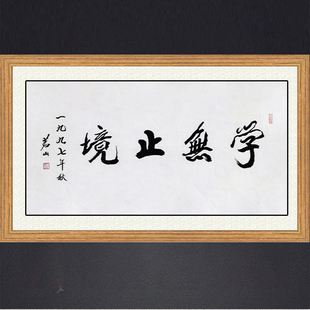 学無止境
一九九七年秋
茗山